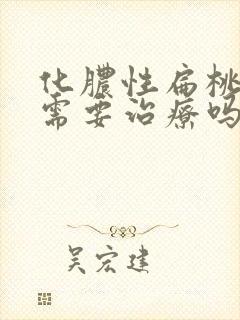 化膿性扁桃
需要治療嗎
吴宏建